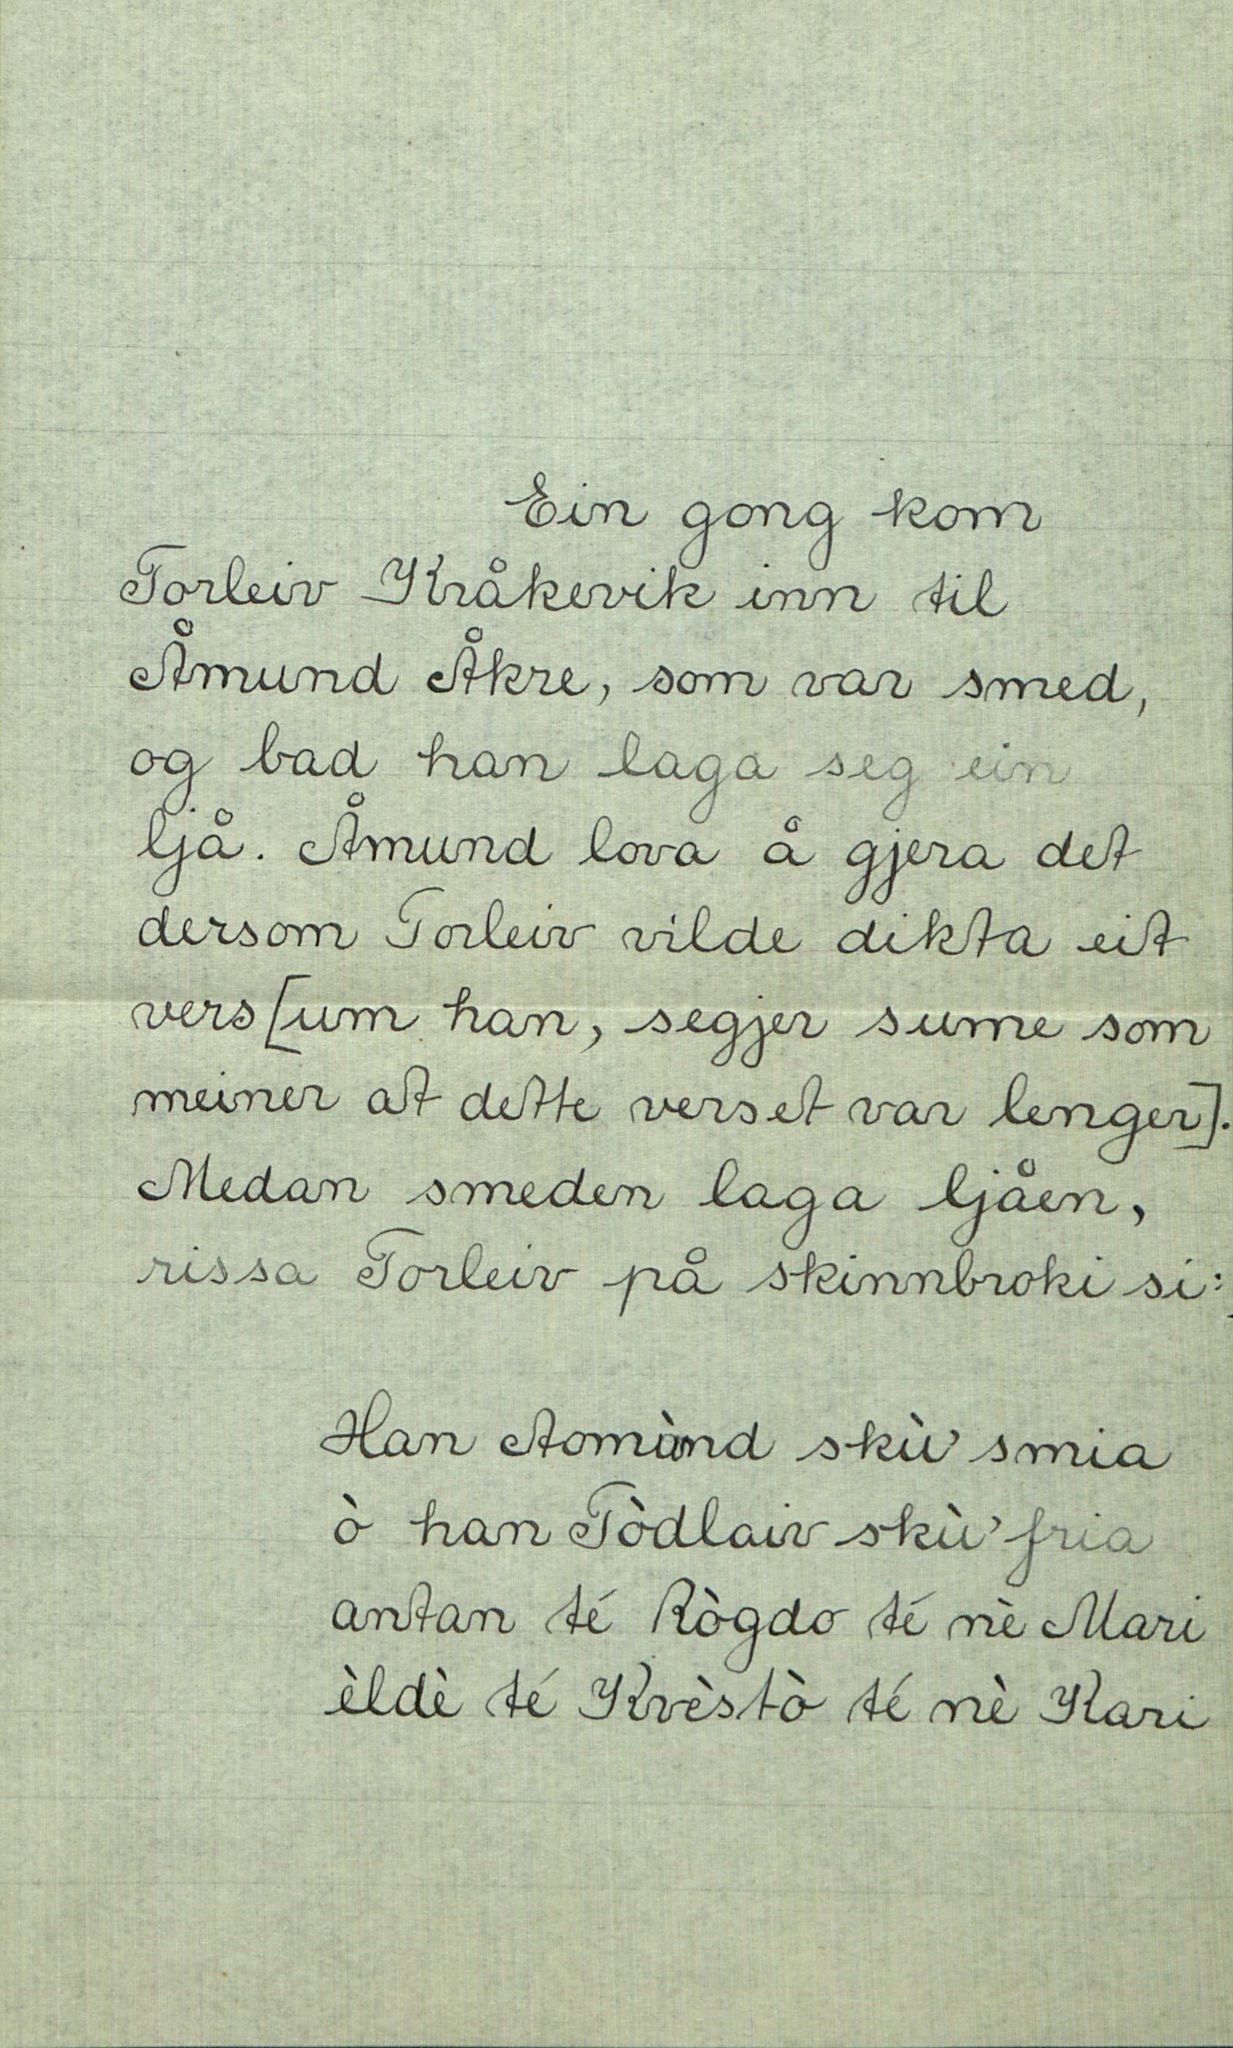 Ein gong kom
Torleiv Kråkevik inn til
Åmund Åkre, som var smed,
og bad han laga seg ein
ljå. Åmund lova å gjera det
dersom Torleiv vilde dikta eit
vers [um han, segjer sume som
meiner at dette verset var lenger].
Medan smeden laga ljåen,
rissa Torleiv på skinnbroki si:
Han Aomùnd skù' smia
ò han Tòdlaiv skù' fria
antan té Rògdo té nè Mari
èldè té Kvèstò té nè Kari